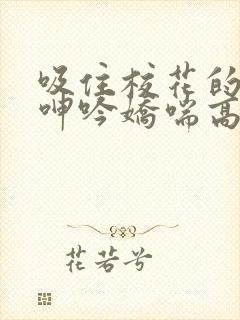 吸住核花的
呻吟娇喘高
花若兮